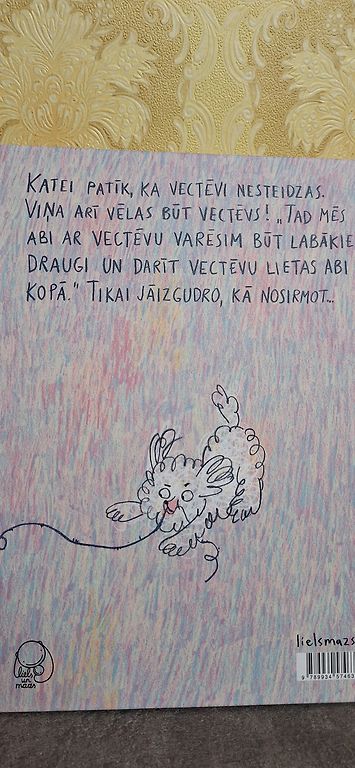 KATEI PATĪK, KA VECTĒVI NESTEIDZAS.
VIŅA ARĪ VĒLAS BŪT VECTĒVS! „TAD MĒS
ABI AR VECTĒVU VARĒSIM BŪT LABĀKIE
DRAUGI UN DARĪT VECTĒVU LIETAS ABI
KOPĀ." TIKAI JĀIZGUDRO, KĀ NOSIRMOT...
liels
un
mazs
lielsmazs
9 789934 57463